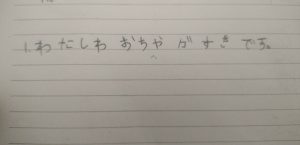 1. わたしわ おちゃ が すき です。